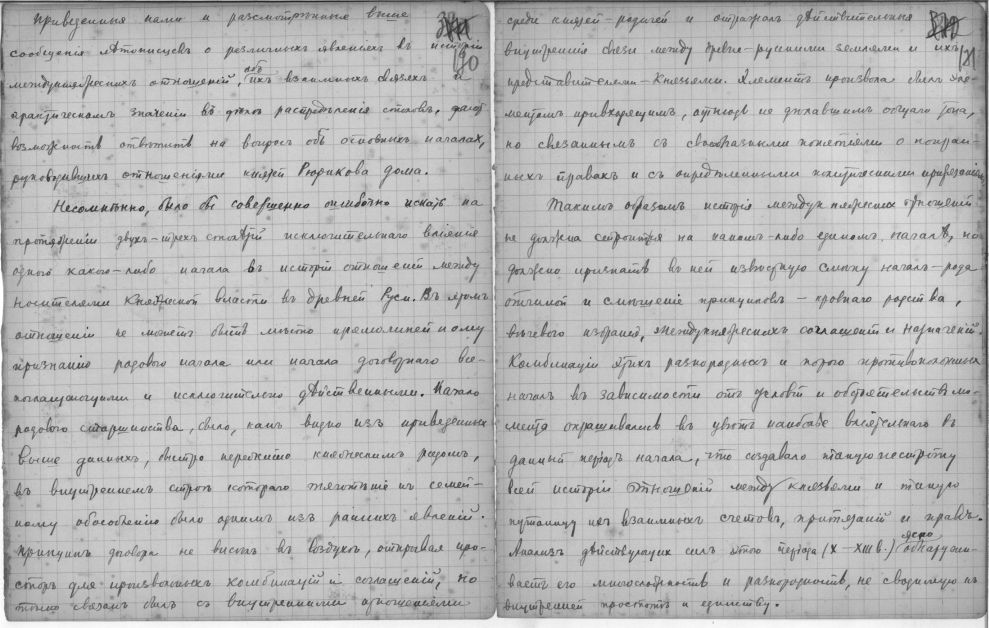 Приведенныя нами и разсмотрѣнныя выше
сообщенія лѣтописцевъ о различныхъ явленіяхъ въ исторіи
междукняжескихъ отношеній, объ ихъ взаимныхъ связяхъ и
практическомъ значеніи въ дѣлѣ распредѣленія столовъ, даютъ
возможность отвѣтить на вопросъ объ основныхъ началахъ,
руководившихъ отношеніями князей Рюрикова дома.
Несомнѣнно, было бы совершенно ошибочно искать на
протяженіи двухъ-трехъ столѣтій исключительнаго вліянія
одного какого-либо начала въ исторіи отношеній между
носителями княжеской власти въ древней Руси. Въ этомъ
отношеніи не можетъ быть мѣсто прямолинейному
признанію родового начала или начала договорнаго все-
поглащающими и исключительно дѣйственными. Начало
родового старшинства, было, какъ видно изъ приведенныхъ
выше данныхъ, быстро пережито княжескимъ родомъ,
въ внутреннемъ строѣ котораго тяготѣніе къ семей-
ному обособленію было однимъ изъ раннихъ явленій.
Принципъ договора не виситъ въ воздухѣ, открывая про-
сторъ для произвольныхъ комбинацій и соглашеній, но
тѣсно связанъ былъ съ внутренними отношеніями
190
среди князей-родичей и отражалъ дѣйствительныя
внутреннія связи между древне-русскими землями и ихъ
представителями-князьями. Элементъ произвола былъ эле-
ментомъ привходящимъ, отнюдь не дѣлавшимъ общаго тона,
но связаннымъ съ своеобразными понятіями о попран-
ныхъ правахъ и съ опредѣленными политическими притязаніями.
Такимъ образомъ исторія междукняжескихъ отношеній
не должна строится на какомъ-либо единомъ началѣ, но
должно признать въ ней извѣстную смѣну началъ – рода
отчиной и смѣшеніе принциповъ – кровнаго родства,
вѣчевого избранія, междукняжескихъ соглашеній и назначеній.
Комбинаціи этихъ разнородныхъ и порою противоположныхъ
началъ въ зависимости отъ условій и обстоятельствъ мо-
мента окрашивались въ цвѣтъ наиболѣе вліятельнаго въ
данный періодъ начала, что создавало такую пестроту
всей исторіи отношеній между князьями и такую
путаницу ихъ взаимныхъ счетовъ, притязаній и правъ.
Анализъ дѣйствующихъ силъ этого періода (X–XIII в.) ясно обнаружи-
ваетъ его многосложность и разнородность, не сводимую къ
внутренней простотѣ и единству.
191